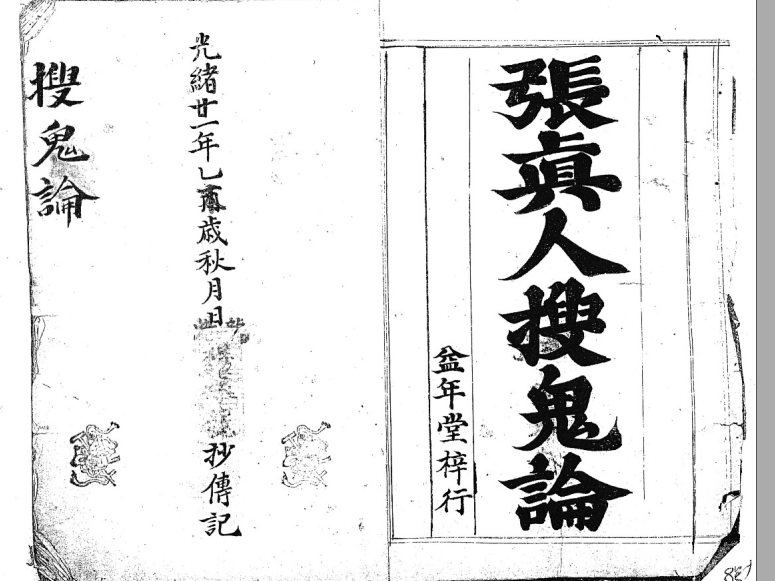 張真人搜鬼論
益年堂梓行
光緒廿一年乙歲秋月日抄傳記
搜鬼論